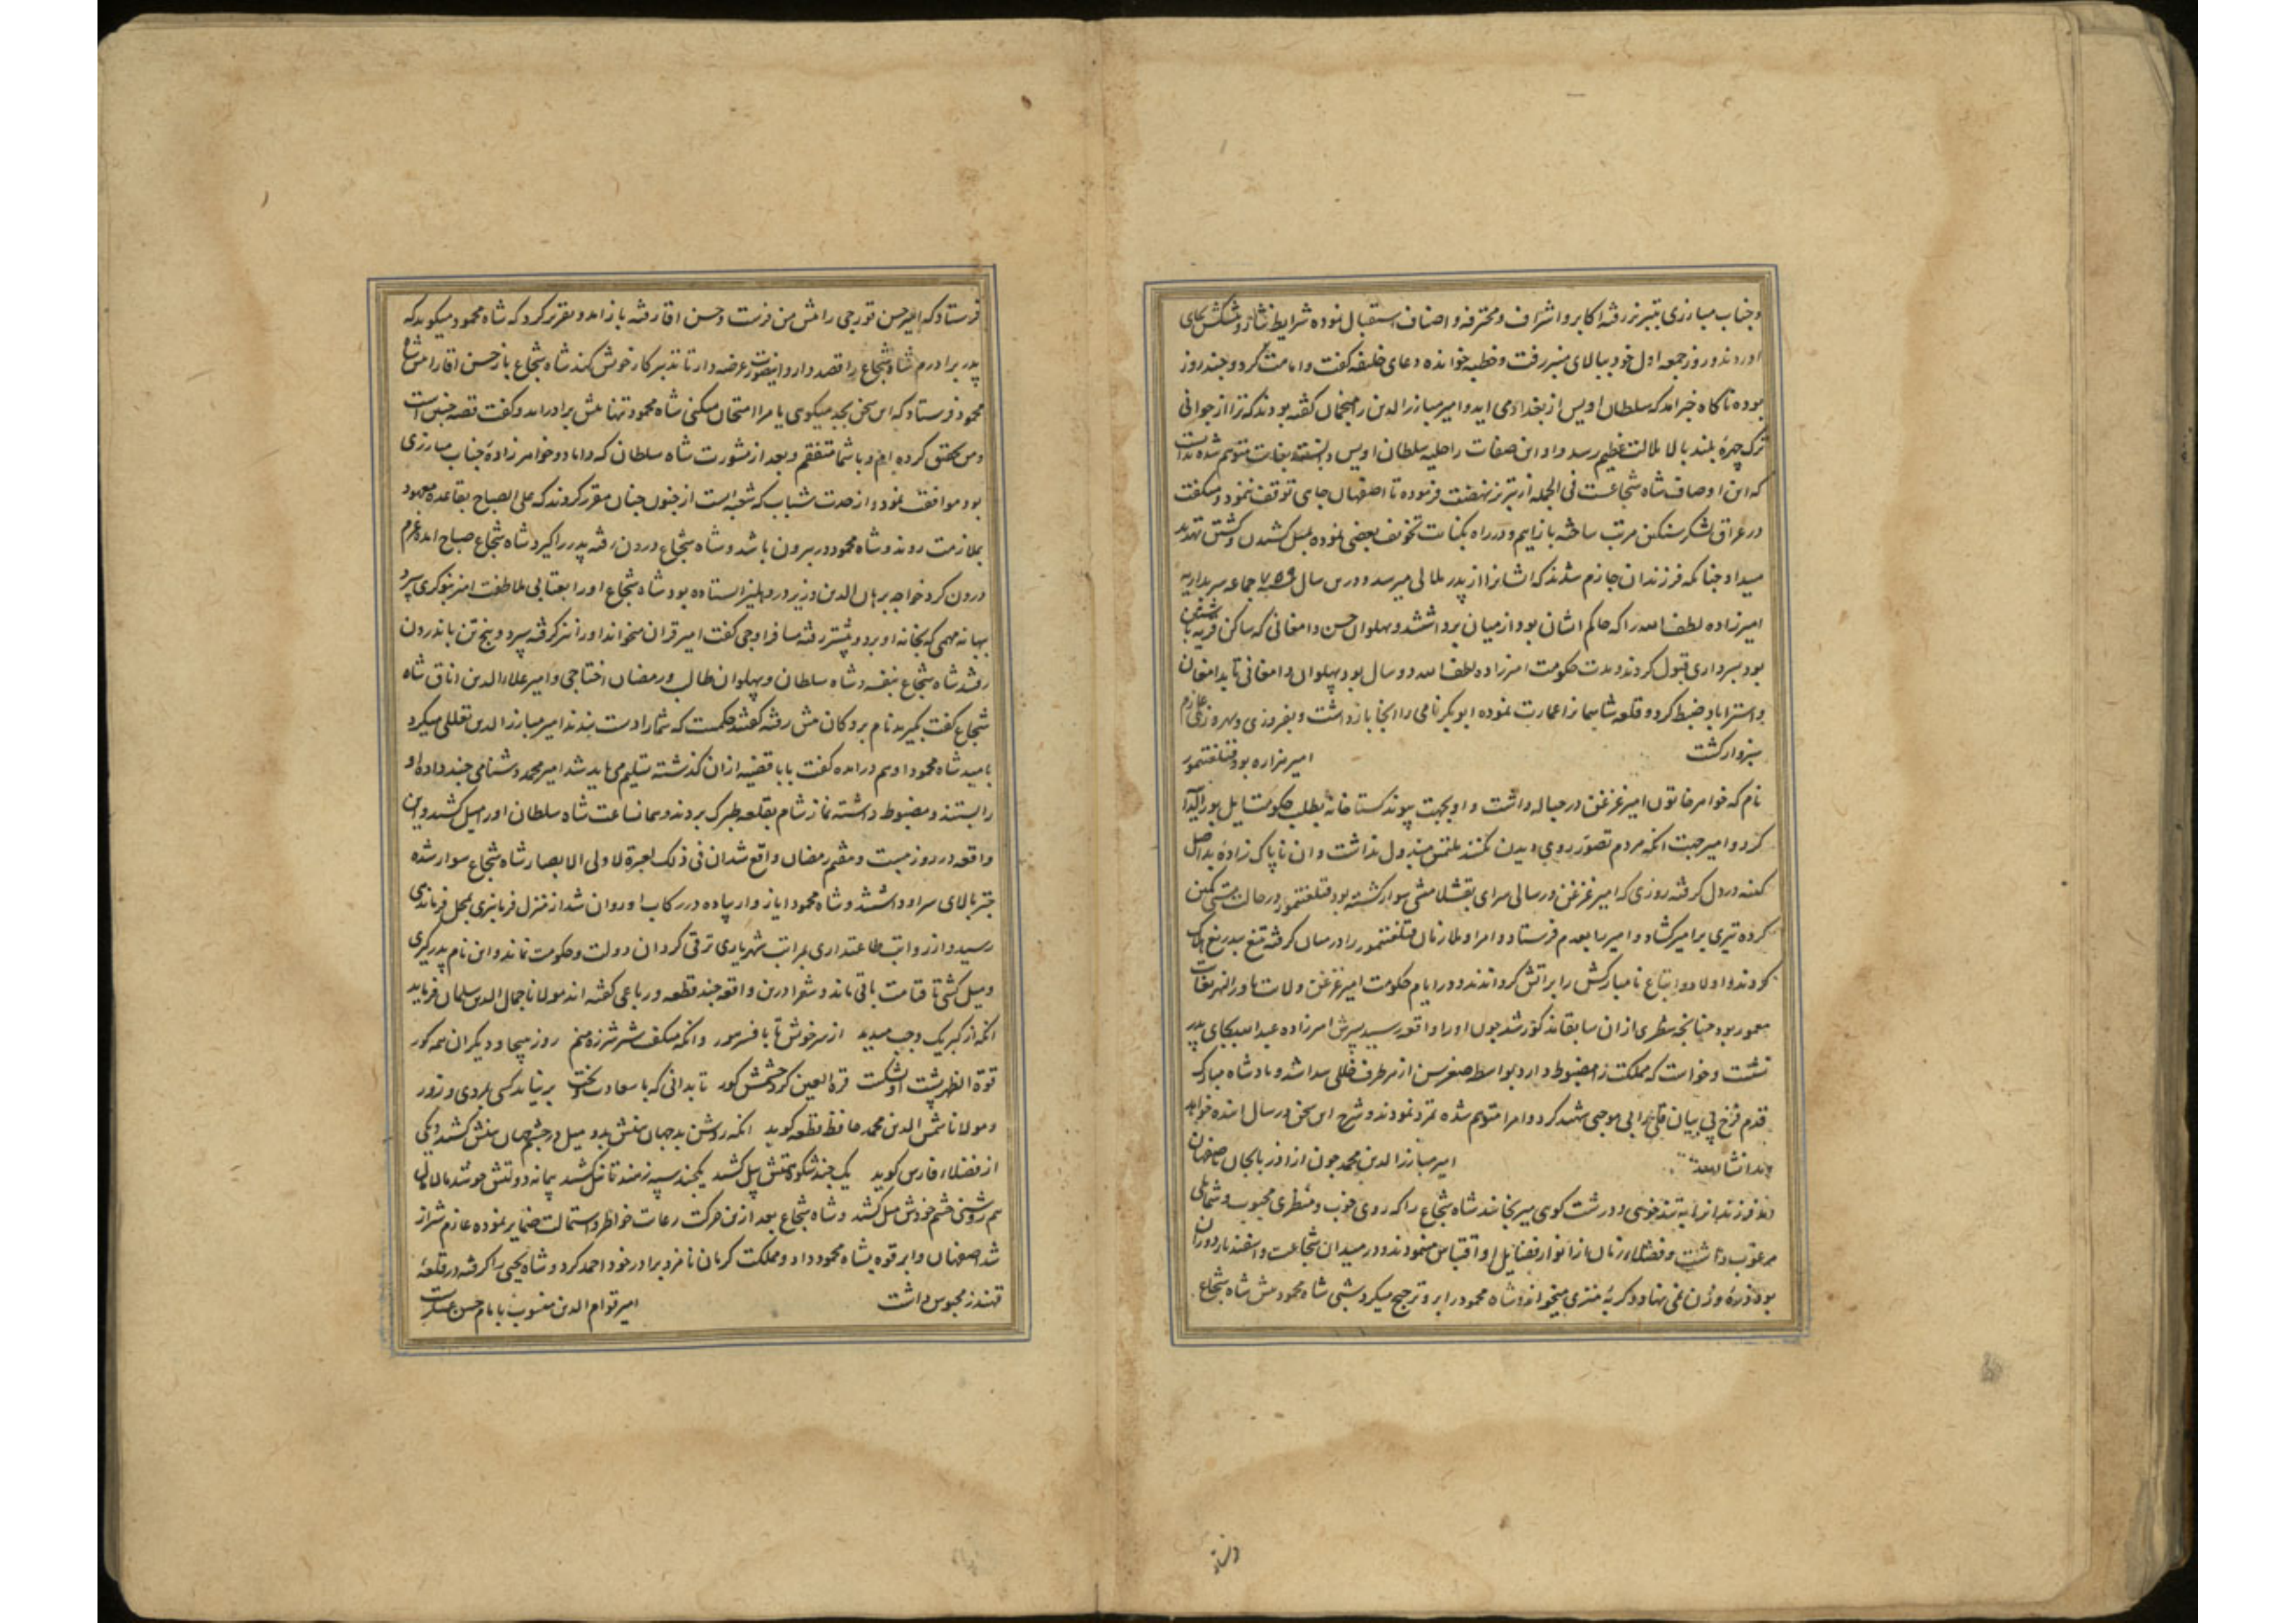 و جناب مبارزی بتبریز رفته اکابر و اشراف و محترفه و اصناف استقبال نموده شرایط نثار و پیشکش بجای
اوردند و روز جمعه اول خود ببالای منبر رفت و خطبه خوانده دعای خلیفه کفت و امامت کرد و چند روز
بوده ناکاه خبر امد که سلطان اویس از بغداد می اید و امیر مبارز الدین را منجمان کفته بودند که ترا از جوانی
ترک چهره بلند بالا ملالت عظیم رسد و او این صفات را حلیه سلطان اویس دانسته بغایت متوهم شد ندانست
که این اوصاف شاه شجاعست فی الجمله از تبریز نهضت فرموده تا اصفهان جای توقف ننمود و میکفت
در عراق لشکر سنکین مرتب ساخته بازایم و در راه بکنایت تخویف بعضی نموده بمیل کشیدن و کشتن تهدید
میداد چنانکه فرزندان جازم شدند که ایشانرا از پدر ملالی میرسد و درین سال ۷۵۹ جماعه سربداریه
امیرزاده لطف الله را که حاکم ایشان بود از میان برداشتند و پهلوان حسن دامغانی که ساکن قریه باشتین
بود بسرداری قبول کردند و مدت حکومت امیرزاده لطف الله دو سال بود پهلوان دامغانی تا بدامغان
و استراباد ضبط کرد و قلعه شاسمان را عمارت نموده ابوبکر نامی را انجا بازداشت و بفیروزی و بهروزی عازم
سبزوار کشت امیر هزاره بود قتلغتمور
نام که خواهر خاتون امیر غزغن در حباله داشت و او بجهت پیوند کستاخانه بطلب حکومت ایل بورالدای
کرد و امیر جهت انکه مردم تصور روی دیدن نکنند ملتمس مبذول نداشت و ان ناپاک زاده بد اصل
کینه در دل کرفته روزی که امیر غزغن در سالی سرای بقشلامشی سوار کشته بود قتلغتمور در حالت مستی کمین
کرده تیری بر امیر کشاد و امیر را بعدم فرستاد و امرا و ملازمان قتلغتمور را در میان کرفته تیغ بیدریغ هلاک
کردند و اولاد و اتباع نامبارکش را بر اتش کردانندند و در ایام حکومت امیر غزغن ولایت ماوراالنهر بغایت
معمور بود چنانچه سطری از ان سابقا مذکور شد چون او را واقعه رسید پسرش امیرزاده عبدالله بجای پدر
نشست و خواست که مملکت را مضبوط دارد بواسطه صغر سن از هر طرف خللی پیدا شد و پادشاه مبارک
قدم فرخ پی بیان قلی را بی موجبی شهید کرد و امرا متوهم شده تمرد نمودند و شرح این سخن در سال اینده خواهد
امد انشا الله امیر مبارز الدین محمد چون از اذربایجان باصفهان
امد فرزندانرا به تندخویی و درشت کویی میرنجانید شاه شجاع را که روی خوب و منظری محبوب و شمایلی
مرغوب داشت و فضلاء زمان از انوار فضایل او اقتباس مینمودند و در میدان شجاعت و اسفندیار دوران
بود ذره وزن نمی نهاد و کربه منتری میخواند و شاه محمود را برو ترجیح میکرد شبی شاه محمود پیش شاه شجاع
فرستاد که امیر حسن قورچی را پیش من فرست و حسن اقا رفته باز امد و تقریر کرد که شاه محمود میکوید که
پدر برادرم شاه شجاع را قصد دارد اینصورت عرضه دار تا تدبیر کار خویش کند شاه شجاع باز حسن اقا را پیش شاه
محمود فرستاد که این سخن بجد میکویی یا مرا امتحان میکنی شاه محمود تنها پیش برادر امد و کفت قصه چنین است
و من تحقیق کرده ام و با شما متفقم و بعد از مشورت شاه سلطان که داماد و خواهرزادۀ جناب مبارزی
بود موافقت نمود و از حدت شباب که شعبه است از جنون چنان مقرر کردند که علی الصباح بقاعده معهود
بملازمت روند و شاه محمود در بیرون باشد و شاه شجاع درون رفته پدر را کیرد شاه شجاع صباح امده عزم
درون کرد خواجه برهان الدین وزیر در دهلیز ایستاده بود شاه شجاع او را بعتابی ملاطفت امیز بنوکری سپرد
بهانه مهمی که بخانه او برد و پیشتر رفته مسافر اوجی کفت امیر قران میخواند او را نیز کرفته سپرد و پنج تن باندرون
رفتند شاه شجاع بنفسه و شاه سلطان و پهلوان طالب و رمضان اختاجی و امیر علاء الدین اناق شاه
شجاع کفت بکیرید نام بردکان پیش رفته کفتند حکمست که شما را دست بندند امیر مبارز الدین تعللی میکرد
بامید شاه محمود او هم درامده کفت بابا قضیه از ان کذشته تسلیم می باید شد امیر محمد دشنامی چند داده او
را ببستند و مضبوط داشته نماز شام بقلعه طبرک بردند و همان ساعت شاه سلطان او را میل کشید و این
واقعه در روز بیست و هشتم رمضان واقع شد ان فی ذلک لعبرة لاولی الابصار شاه شجاع سوار شده
چتر بالای سر او داشتند و شاه محمود ایاز وار پیاده در رکاب او روان شد از منزل فرمانبری بمحل فرماندهی
رسید و از رواتب طاعتداری بمراتب شهریاری ترقی کرد ان دولت و حکومت نماند و این نام پدر کیری
و میل کشی تا قیامت باقی ماند و شعرا درین واقعه چند قطعه و رباعی کفته اند مولانا جمال الدین سلمان فرماید
انکه از کبر یک وجب میدید از سر خویش تا بافسر هور وانکه میکفت شیر شرزه منم روز هیجا و دیکران همه کور
قوة الظهر پشت او بشکست قرة العین کرد چشمش کور تا بدانی که با سعادت و بخت بر نیاید کسی بمردی و زور
و مولانا شمس الدین محمد حافظ قطعه کوید انکه روشن بد جهان بینش بدو میل در چشم جهان بینش کشید و یکی
از فضلاء فارس کوید یک چند شکوهتش پیل کشید یکچند سپه ز هند تا نیل کشید پیمانه دولتش چو شد مالامال
هم روشنی چشم خودش میل کشید و شاه شجاع بعد ازین حرکت رعایت خواطر و استمالت ضمایر نموده عازم شیراز
شد اصفهان و ابرقوه بشاه محمود داد و مملکت کرمان نامزد برادر خود احمد کرد و شاه یحیی را کرفته در قلعه
قهندز محبوس داشت امیر قوام الدین منسوب بامام حسن عسکریست
فرستاد